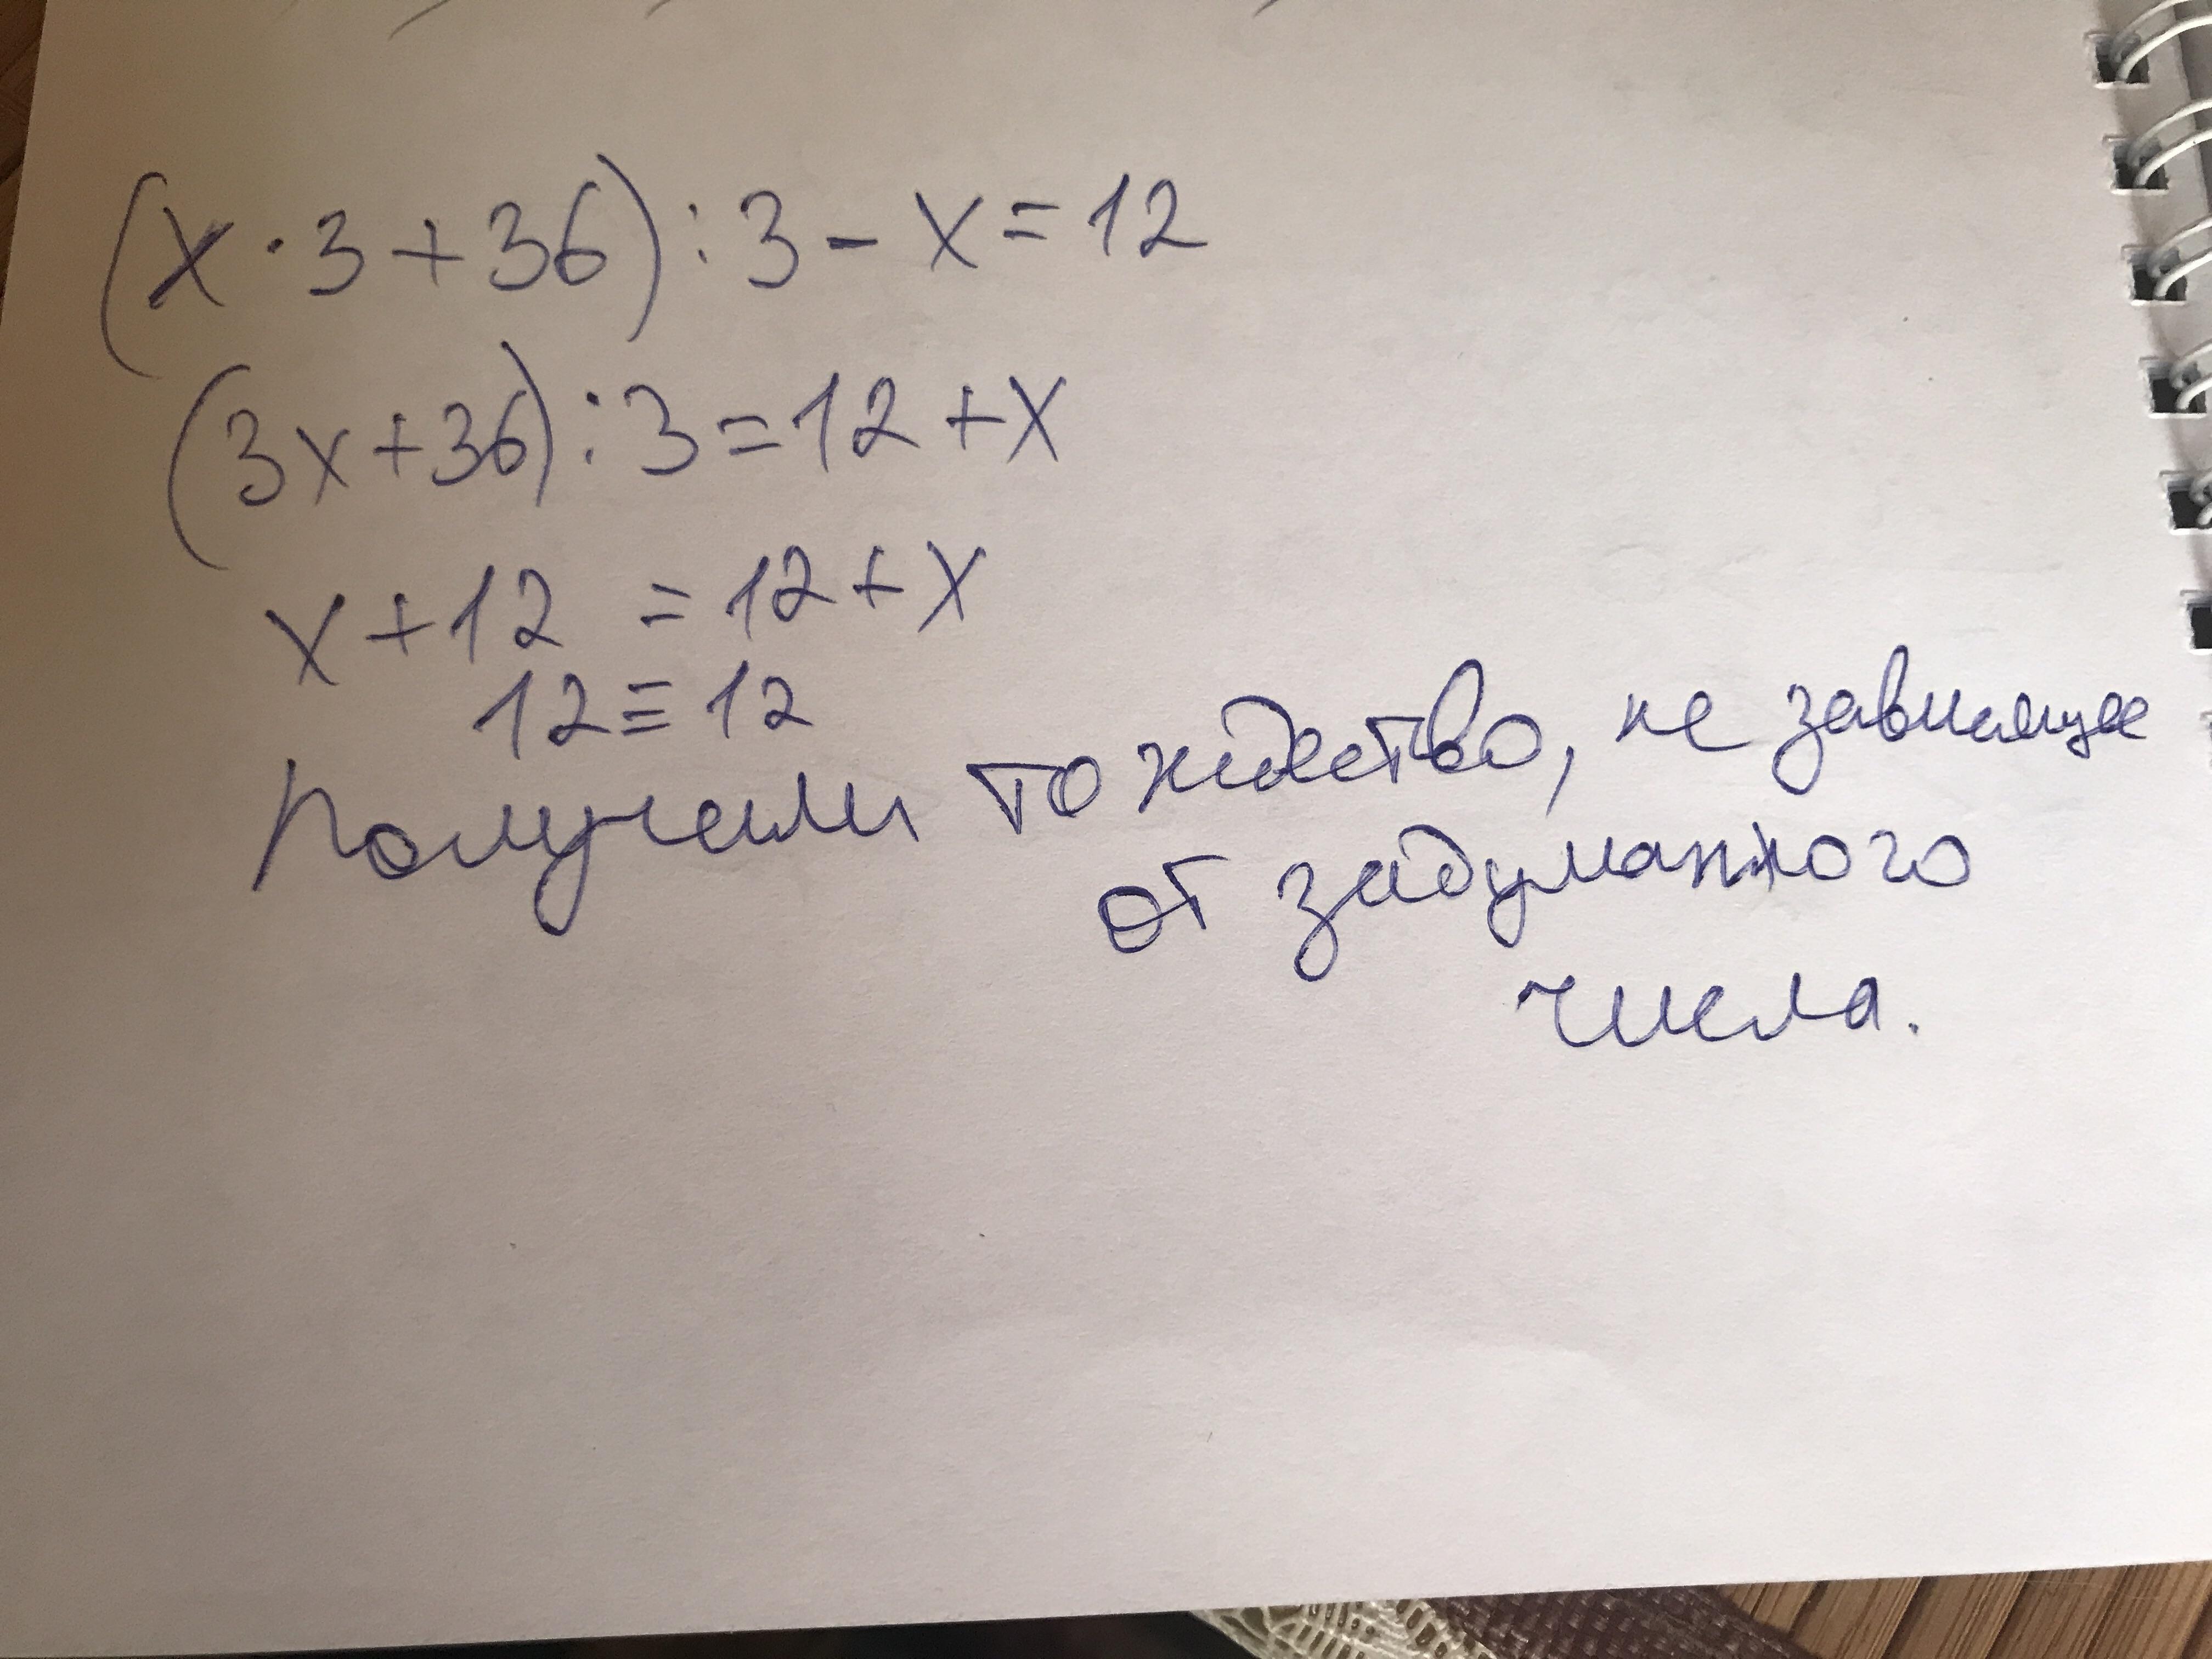 (x·3+36):3-x=12
(3x+36):3=12+x
x+12 =12+x
12≡12
Получили тождество, не зависящее
от задуманного
числа.